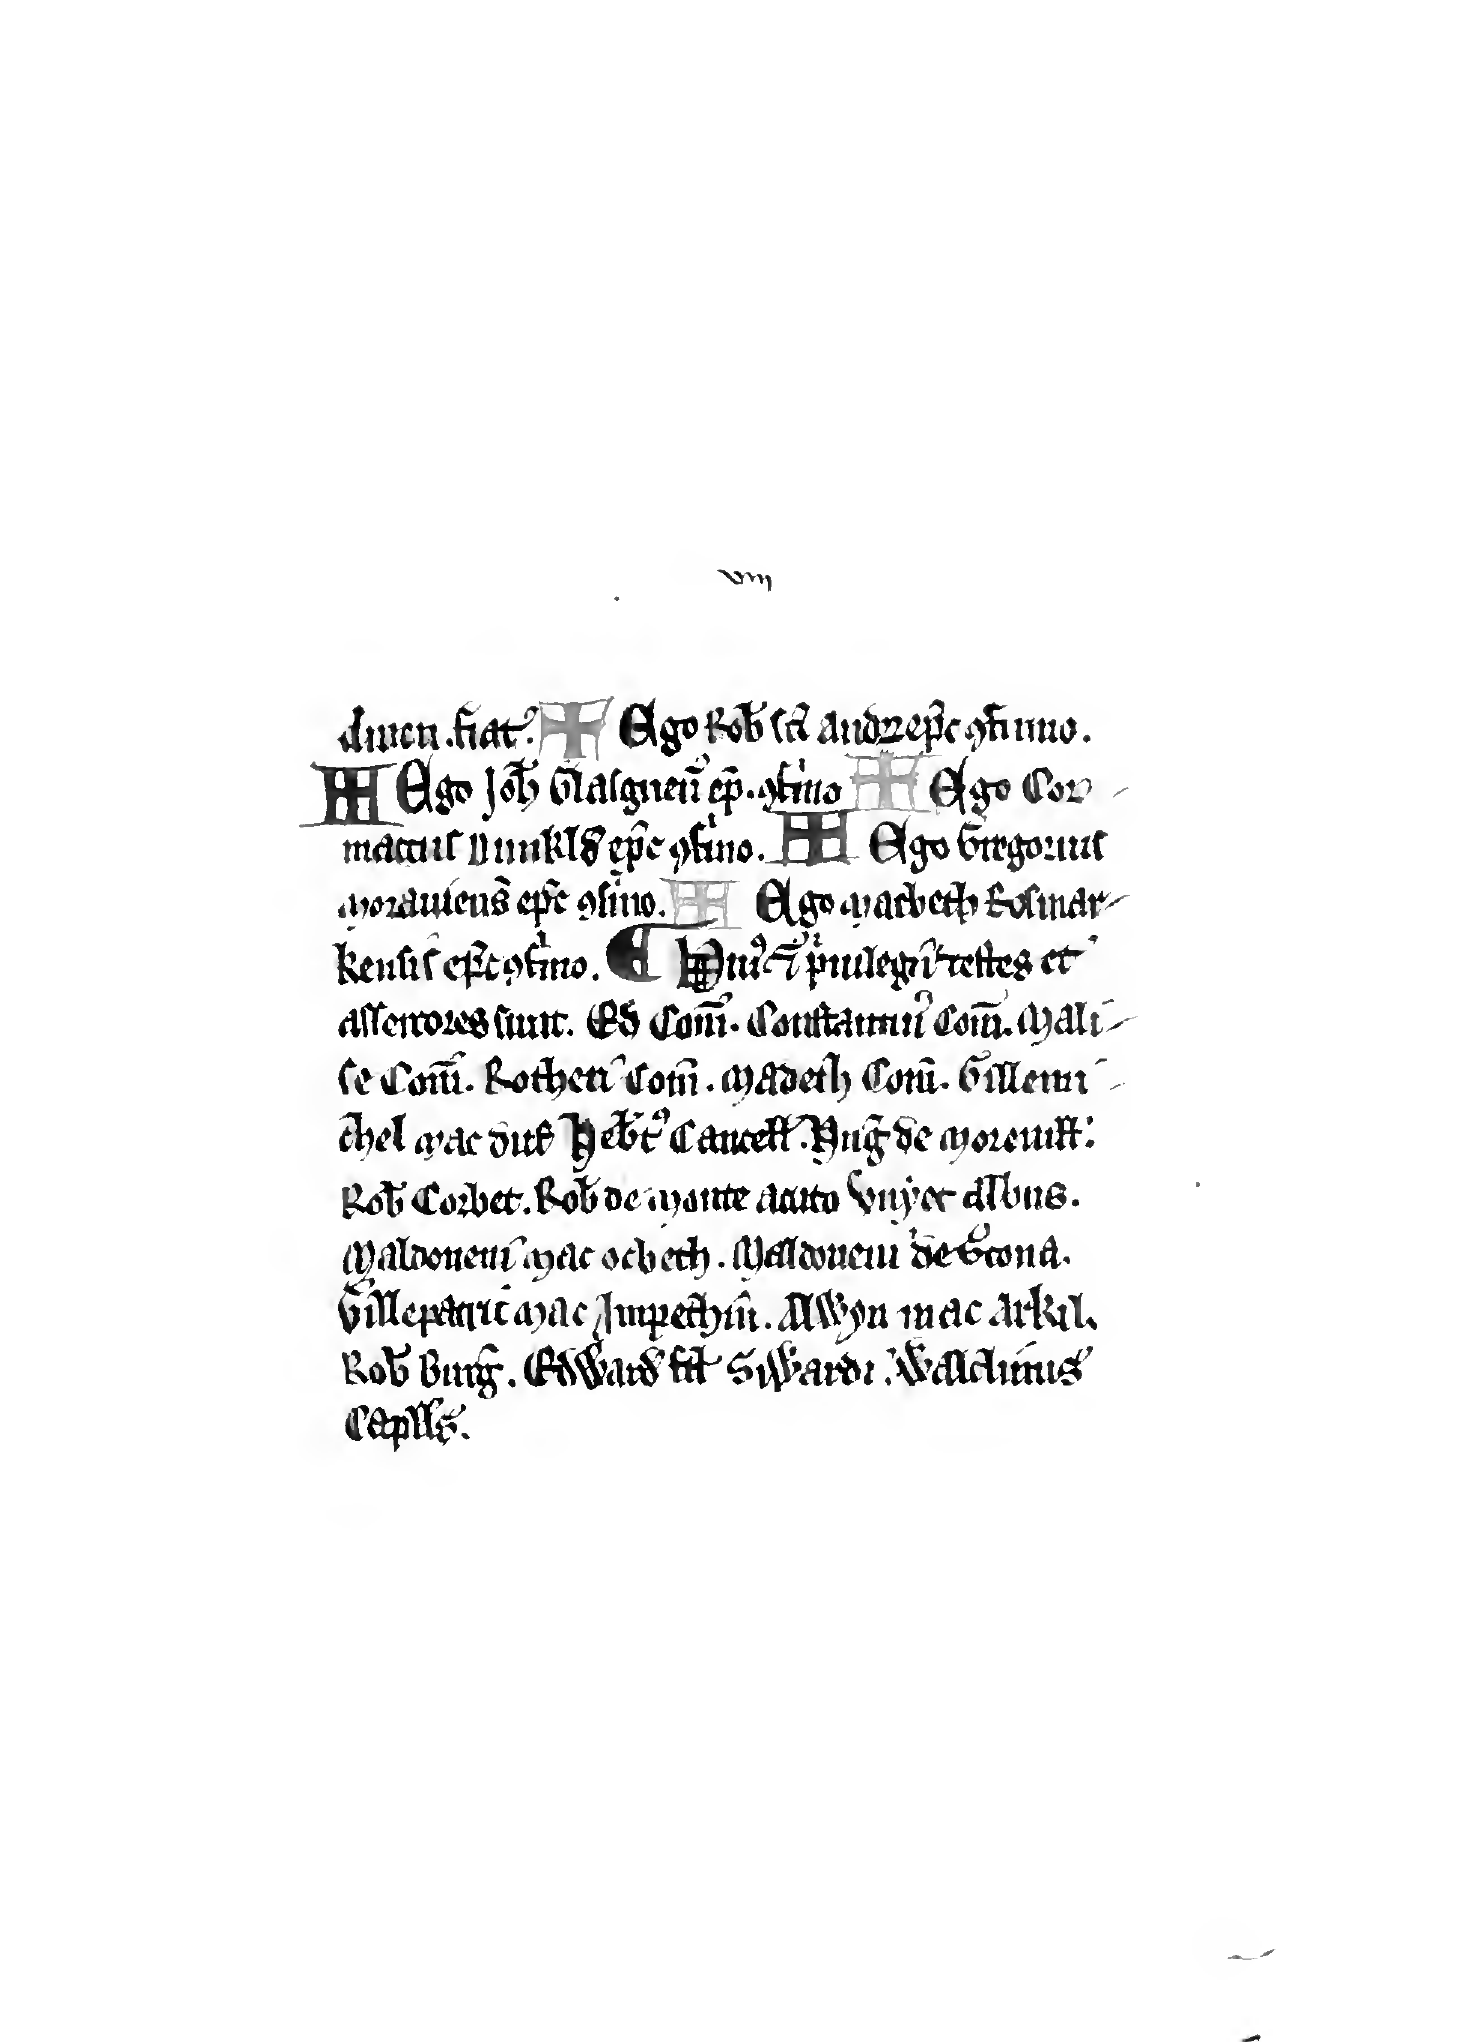 viij
amen . fiat . Ego Rob̄ sc̄i Andr ep̄c ꝯfirmo .
Ego Joh̄ Glasgueñ ep̄ . ꝯfirmo Ego Cor
maccus Dunkld ep̄c ꝯfirmo . Ego Gregorius
Morauiens̄ ep̄c ꝯfirmo . Ego Macbeth Rosmar
kensis ep̄c ꝯfirmo . Huiꝰ p̄uilegii testes et
assertores sunt . Ed Com̄ . Constantin̄ Com̄ . Mali
se Com̄ . Rotheri Com̄ . Madeth Com̄ . Gillemi
chel mac duf Heb̄tꝰ Cancell̄ . Huḡ de Moreuill̄ :
Rob̄ Corbet . Rob̄ de Monte acuto Vnyet albus .
Maldoueni mac ocbeth . Maldoueni de Scona .
Gillepatric mac Impethin̄ . Alwyn mac Arkil .
Rob̄ Burḡ . Edward fil̄ Siwardi . Walclinus
Capll̄s .